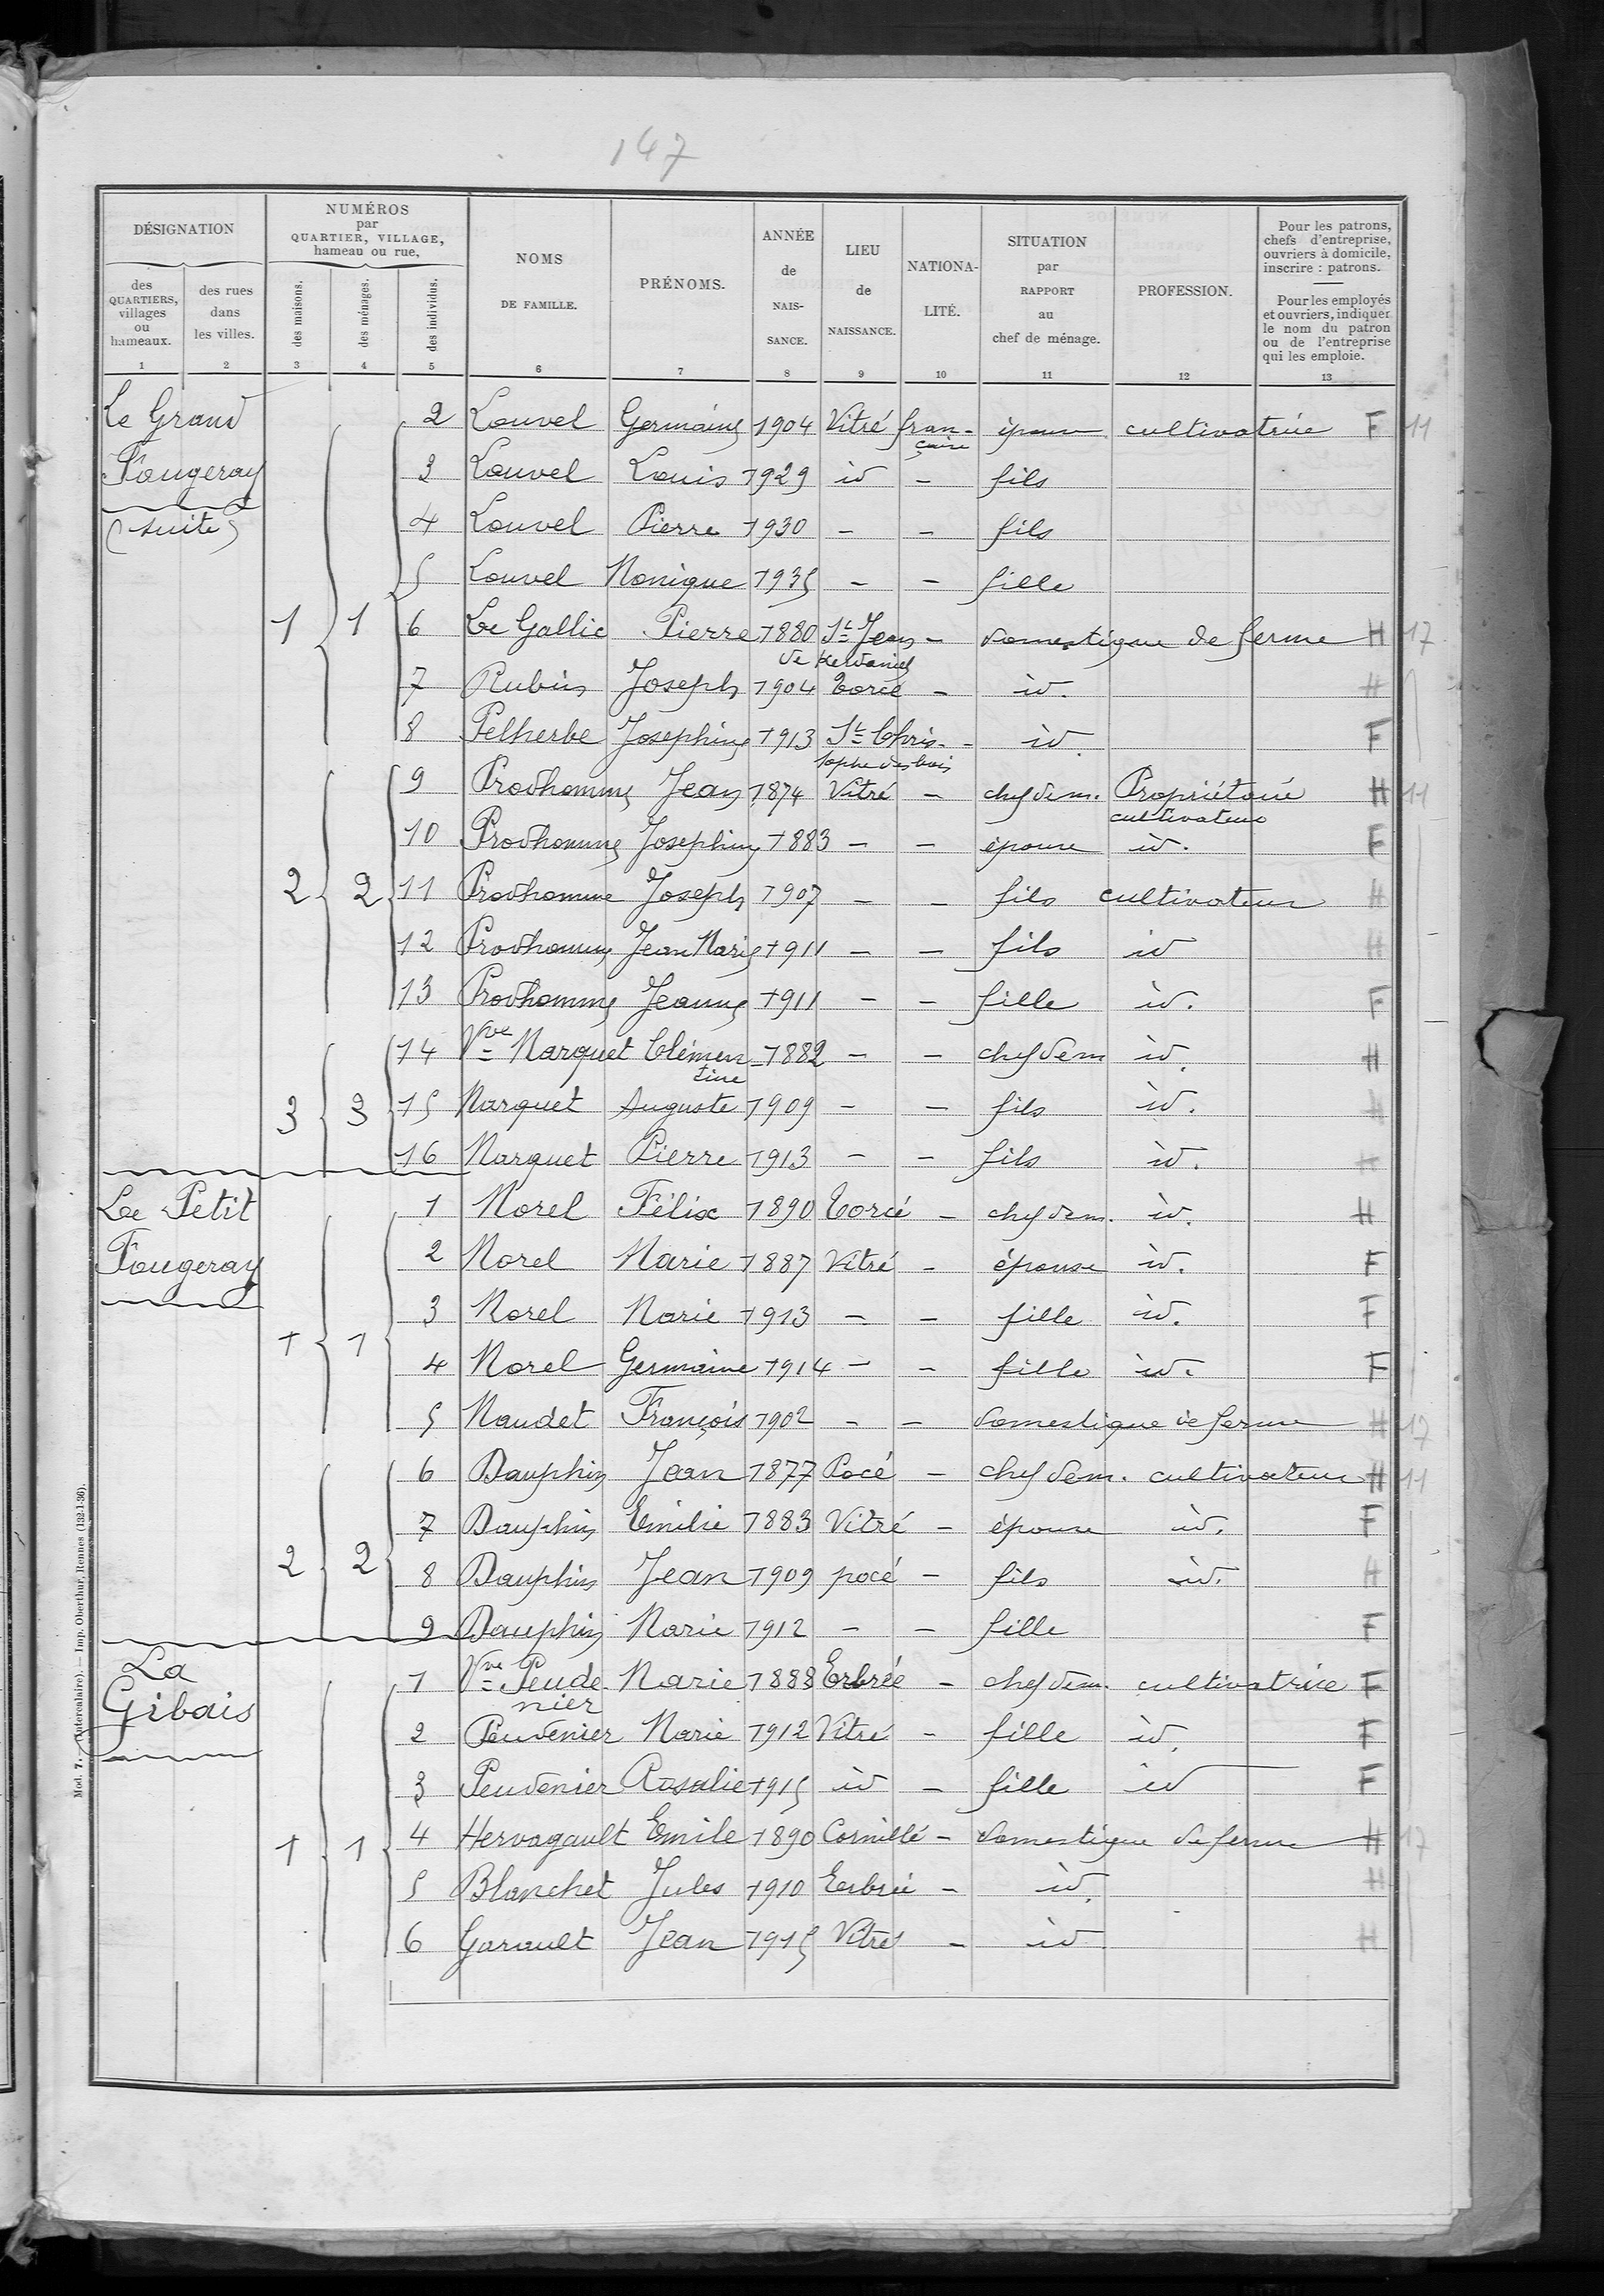 147
DÉSIGNATION
des QUARTIERS, villages ou hameaux.
des rues dans les villes.
NUMÉROS par QUARTIER, VILLAGE, hameau ou rue,
des maisons.
des ménages.
des individus.
NOMS DE FAMILLE.
PRÉNOMS.
ANNÉE de NAIS-SANCE.
LIEU de NAISSANCE.
NATIONA-LITÉ.
SITUATION par RAPPORT au chef de ménage.
PROFESSION.
Pour les patrons, chefs d'entreprise, ouvriers à domicile, inscrire : patrons.
Pour les employés et ouvriers, indiquer le nom du patron ou de l'entreprise qui les emploie.
1 2 3 4 5 6 7 8 9 10 11 12 13
Le Grand 2 Louvel Germaine 1904 Vitré fran-çaise épouse cultivatrice F 11
Fougeray 3 Louvel Louis 1929 id - fils
(suite) 4 Louvel Pierre 1930 - - fils
5 Louvel Monique 1935 - - fille
1 1 6 Le Gallic Pierre 1880 St Jean - domestique de ferme H 17
de Kerdaniel
7 Rubin Joseph 1904 Torcé - id. H
8 Pelherbe Josephine 1913 St Chris- - id. F
tophe des bois
9 Prodhomme Jean 1874 Vitré - chef de m. Propriétaire H 11
cultivateur
10 Prodhomme Josephine 1883 - - épouse id. F
2 2 11 Prodhomme Joseph 1907 - - fils cultivateur H
12 Prodhomme Jean Marie 1911 - - fils id H
13 Prodhomme Jeanne 1911 - - fille id. F
14 Vve Marquet Clémen- 1882 - - chef de m id. H
tine
3 3 15 Marquet Auguste 1909 - - fils id. H
16 Marquet Pierre 1913 - - fils id. H
Le Petit 1 Morel Félix 1890 Torcé - chef de m. id. H
Fougeray 2 Morel Marie 1887 Vitré - épouse id. F
3 Morel Marie 1913 - - fille id. F
1 1 4 Morel Germaine 1914 - - fille id. F
5 Naudet François 1902 - - domestique de ferme H 17
6 Dauphin Jean 1877 Pocé - chef de m. cultivateur H 11
7 Dauphin Emilie 1883 Vitré - épouse id. F
2 2 8 Dauphin Jean 1909 pocé - fils id. H
9 Dauphin Marie 1912 - - fille F
La 1 Vve Peude- Marie 1888 Erbrée - chef de m. cultivatrice F
Gibais nier
2 Peudenier Marie 1912 Vitré - fille id. F
3 Peudenier Rosalie 1915 id - fille id F
1 1 4 Hervagault Emile 1890 Cornillé - domestique de ferme H 17
5 Blanchet Jules 1910 Erbrée - id. H
6 Garault Jean 1915 Vitré - id H
Mod. 7. — (Intercalaire). — Imp. Oberthur, Rennes (132-1-36).